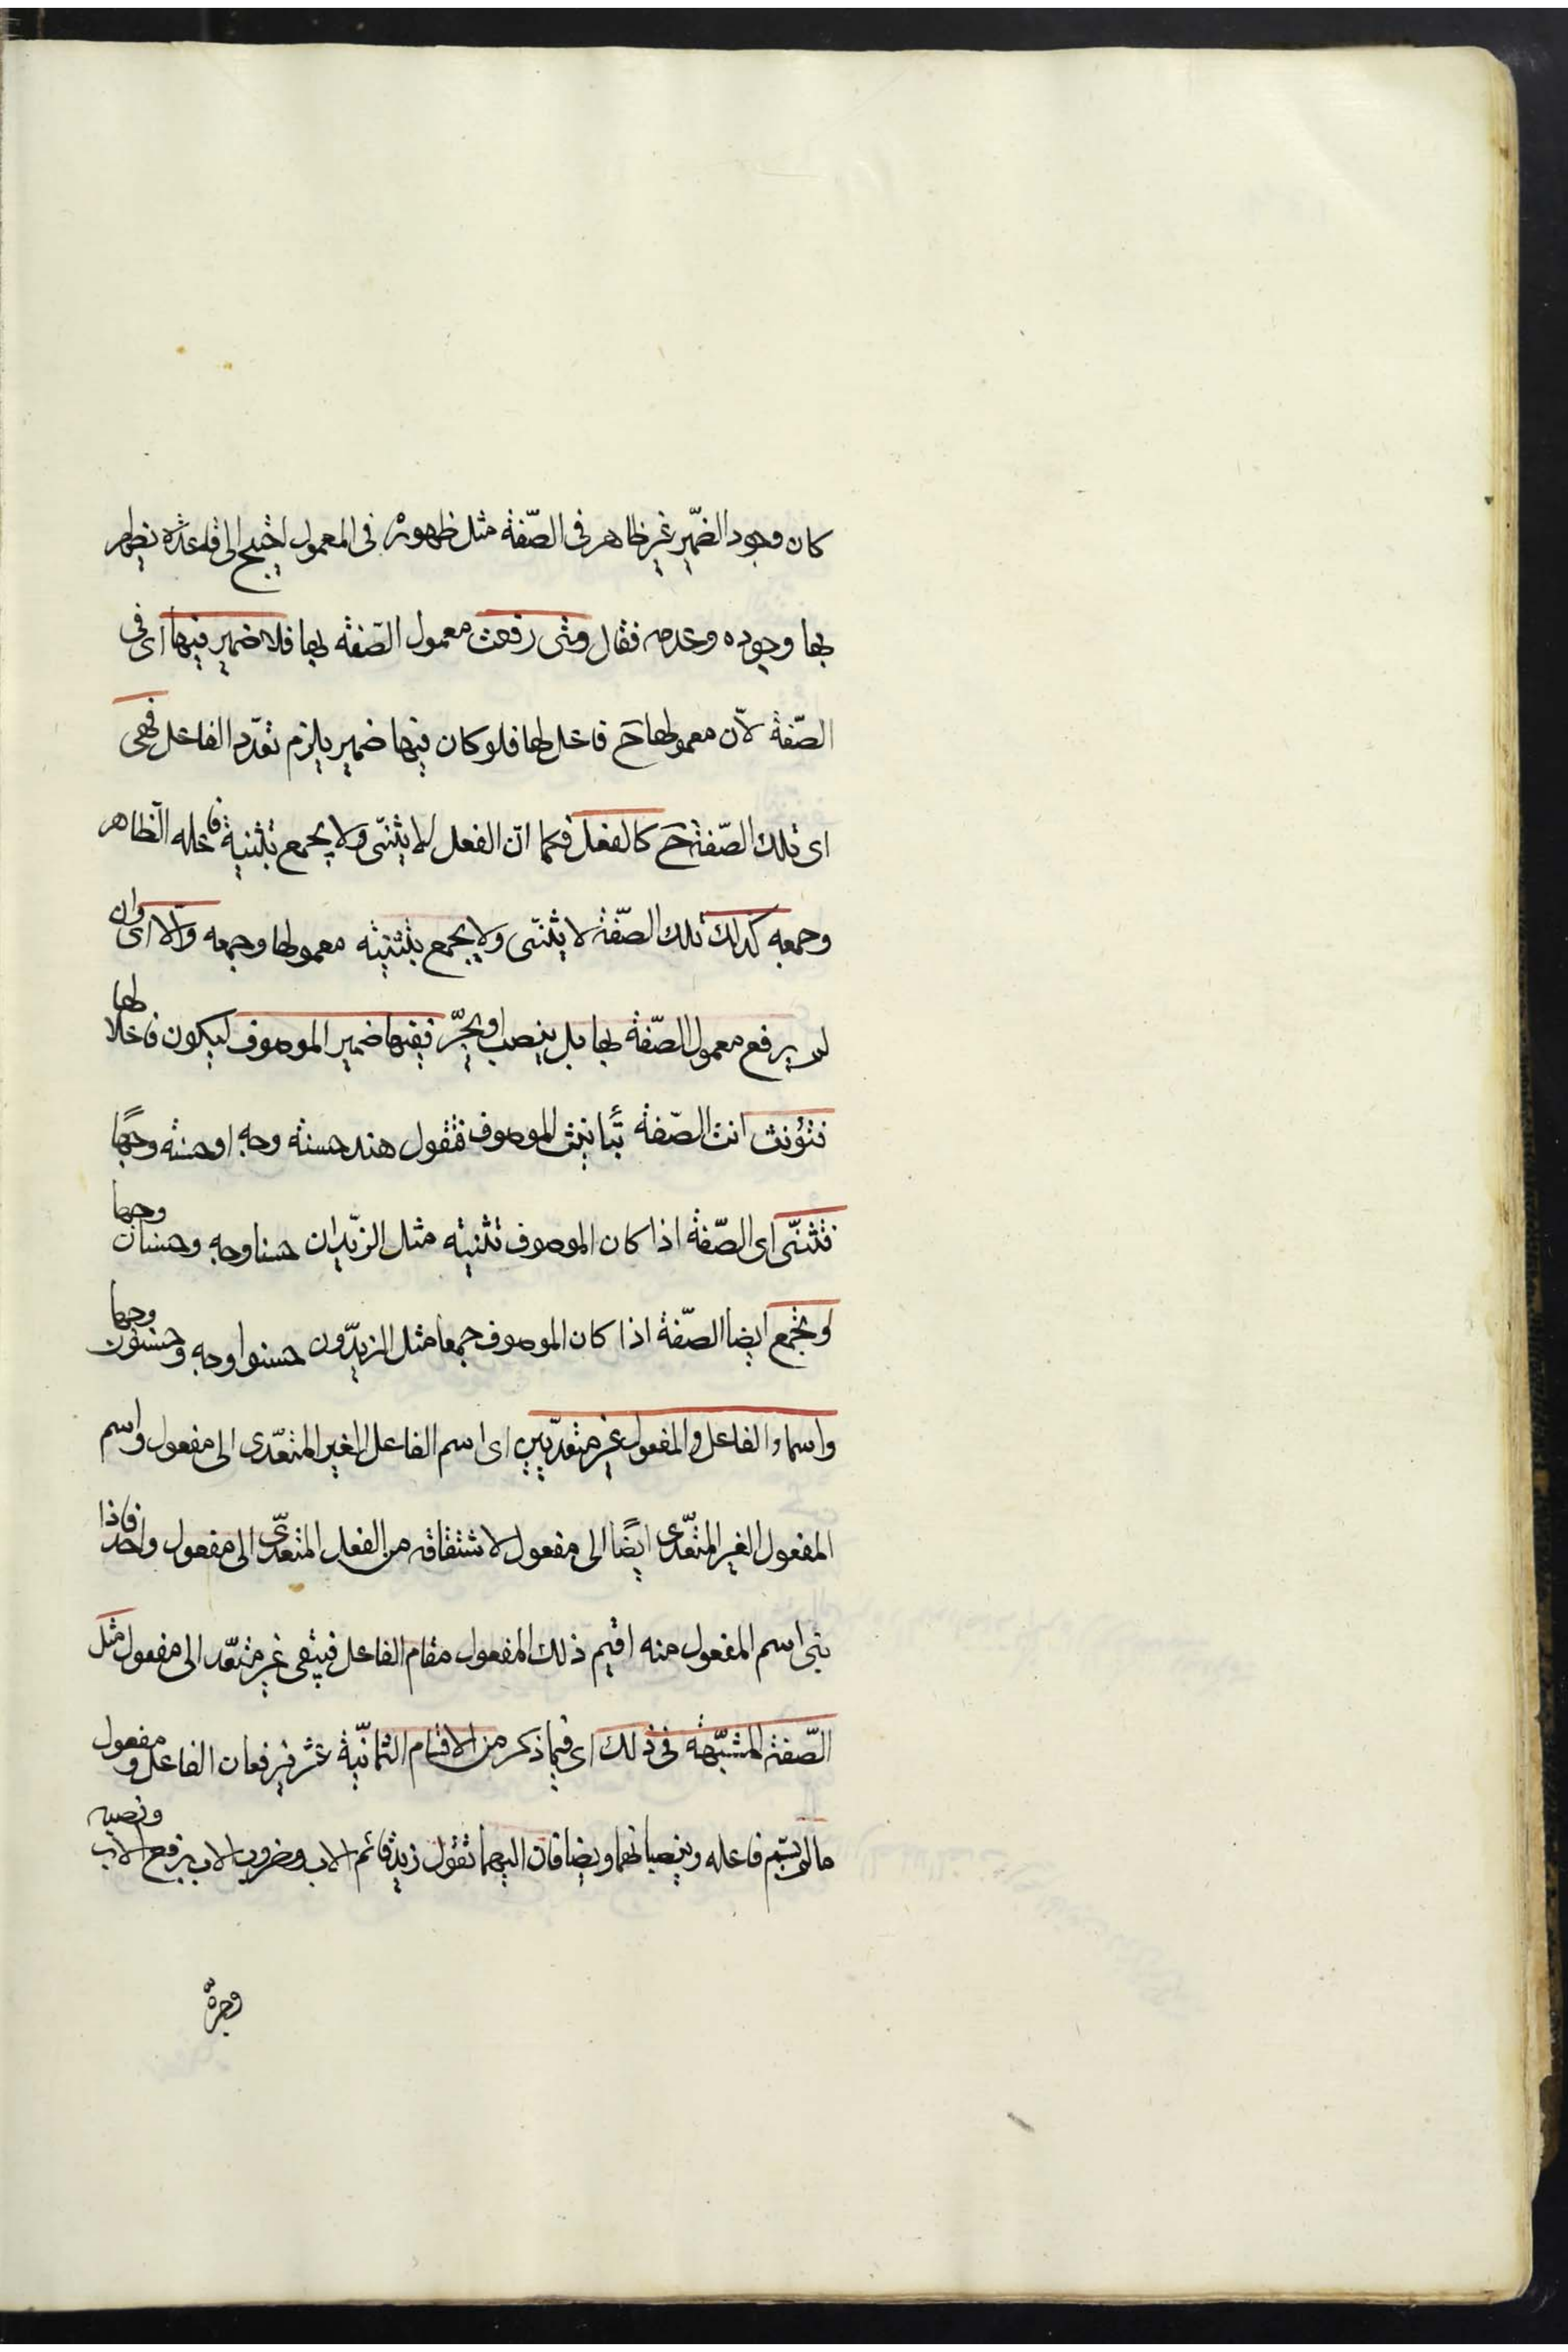 كان وجود الضمير غير ظاهر في الصّفة مثل ظهوره في المعمول احتيج الى قاعدة يظهر
بها وجوده وعدمه فقال ومتى رفعت معمول الصّفة بها فلا ضمير فيها اى فى
الصّفة لأن معمولها ح فاعل لها فلو كان فيها ضمير يلزم تعدّد الفاعل فهى
اى تلك الصّفة ح كالفعل فكما انّ الفعل لا يثنّى ولا يجمع بتثنية فاعله الظاهر
وجمعه كذلك تلك الصّفة لا يثنّى ولا يجمع بتثنيته معمولها وجمعه والّا اى وان
لم يرفع معمول الصّفة بها بل ينصب او يجرّ ففيها ضمير الموصوف ليكون فاعلا لها
فتؤنث انت الصّفة بتأنيث الموصوف فتقول هند حسنة وجه او حسنة وجهًا
فتثنّى اى الصّفة اذا كان الموصوف تثنية مثل الزّيدان حسنا وجه وحسنان وجها
او تجمع ايضا الصّفة اذا كان الموصوف جمعا مثل الزيدّون حسنوا وجه وحسنون وجها
واسماء الفاعل والمفعول غير متعدّيين اى اسم الفاعل الغير المتعّدى الى مفعول واسم
المفعول الغير المتعّدى ايضًا الى مفعول لاشتقاقه من الفعل المتعدّى الى مفعول واحد فاذا
بنى اسم المفعول منه اقيم ذلك المفعول مقام الفاعل فيبقى غير متعّد الى مفعول مثل
الصّفة المشبّهة فى ذلك اى فيما ذكر من الاقسام الثمانّية عشر فيرفعان الفاعل ومفعول
ما لم يسّم فاعله وينصبانهما ويضافان اليهما تقول زيد قائم الاب ومضروب الاب برفع الاب ونصبه
وجرّه